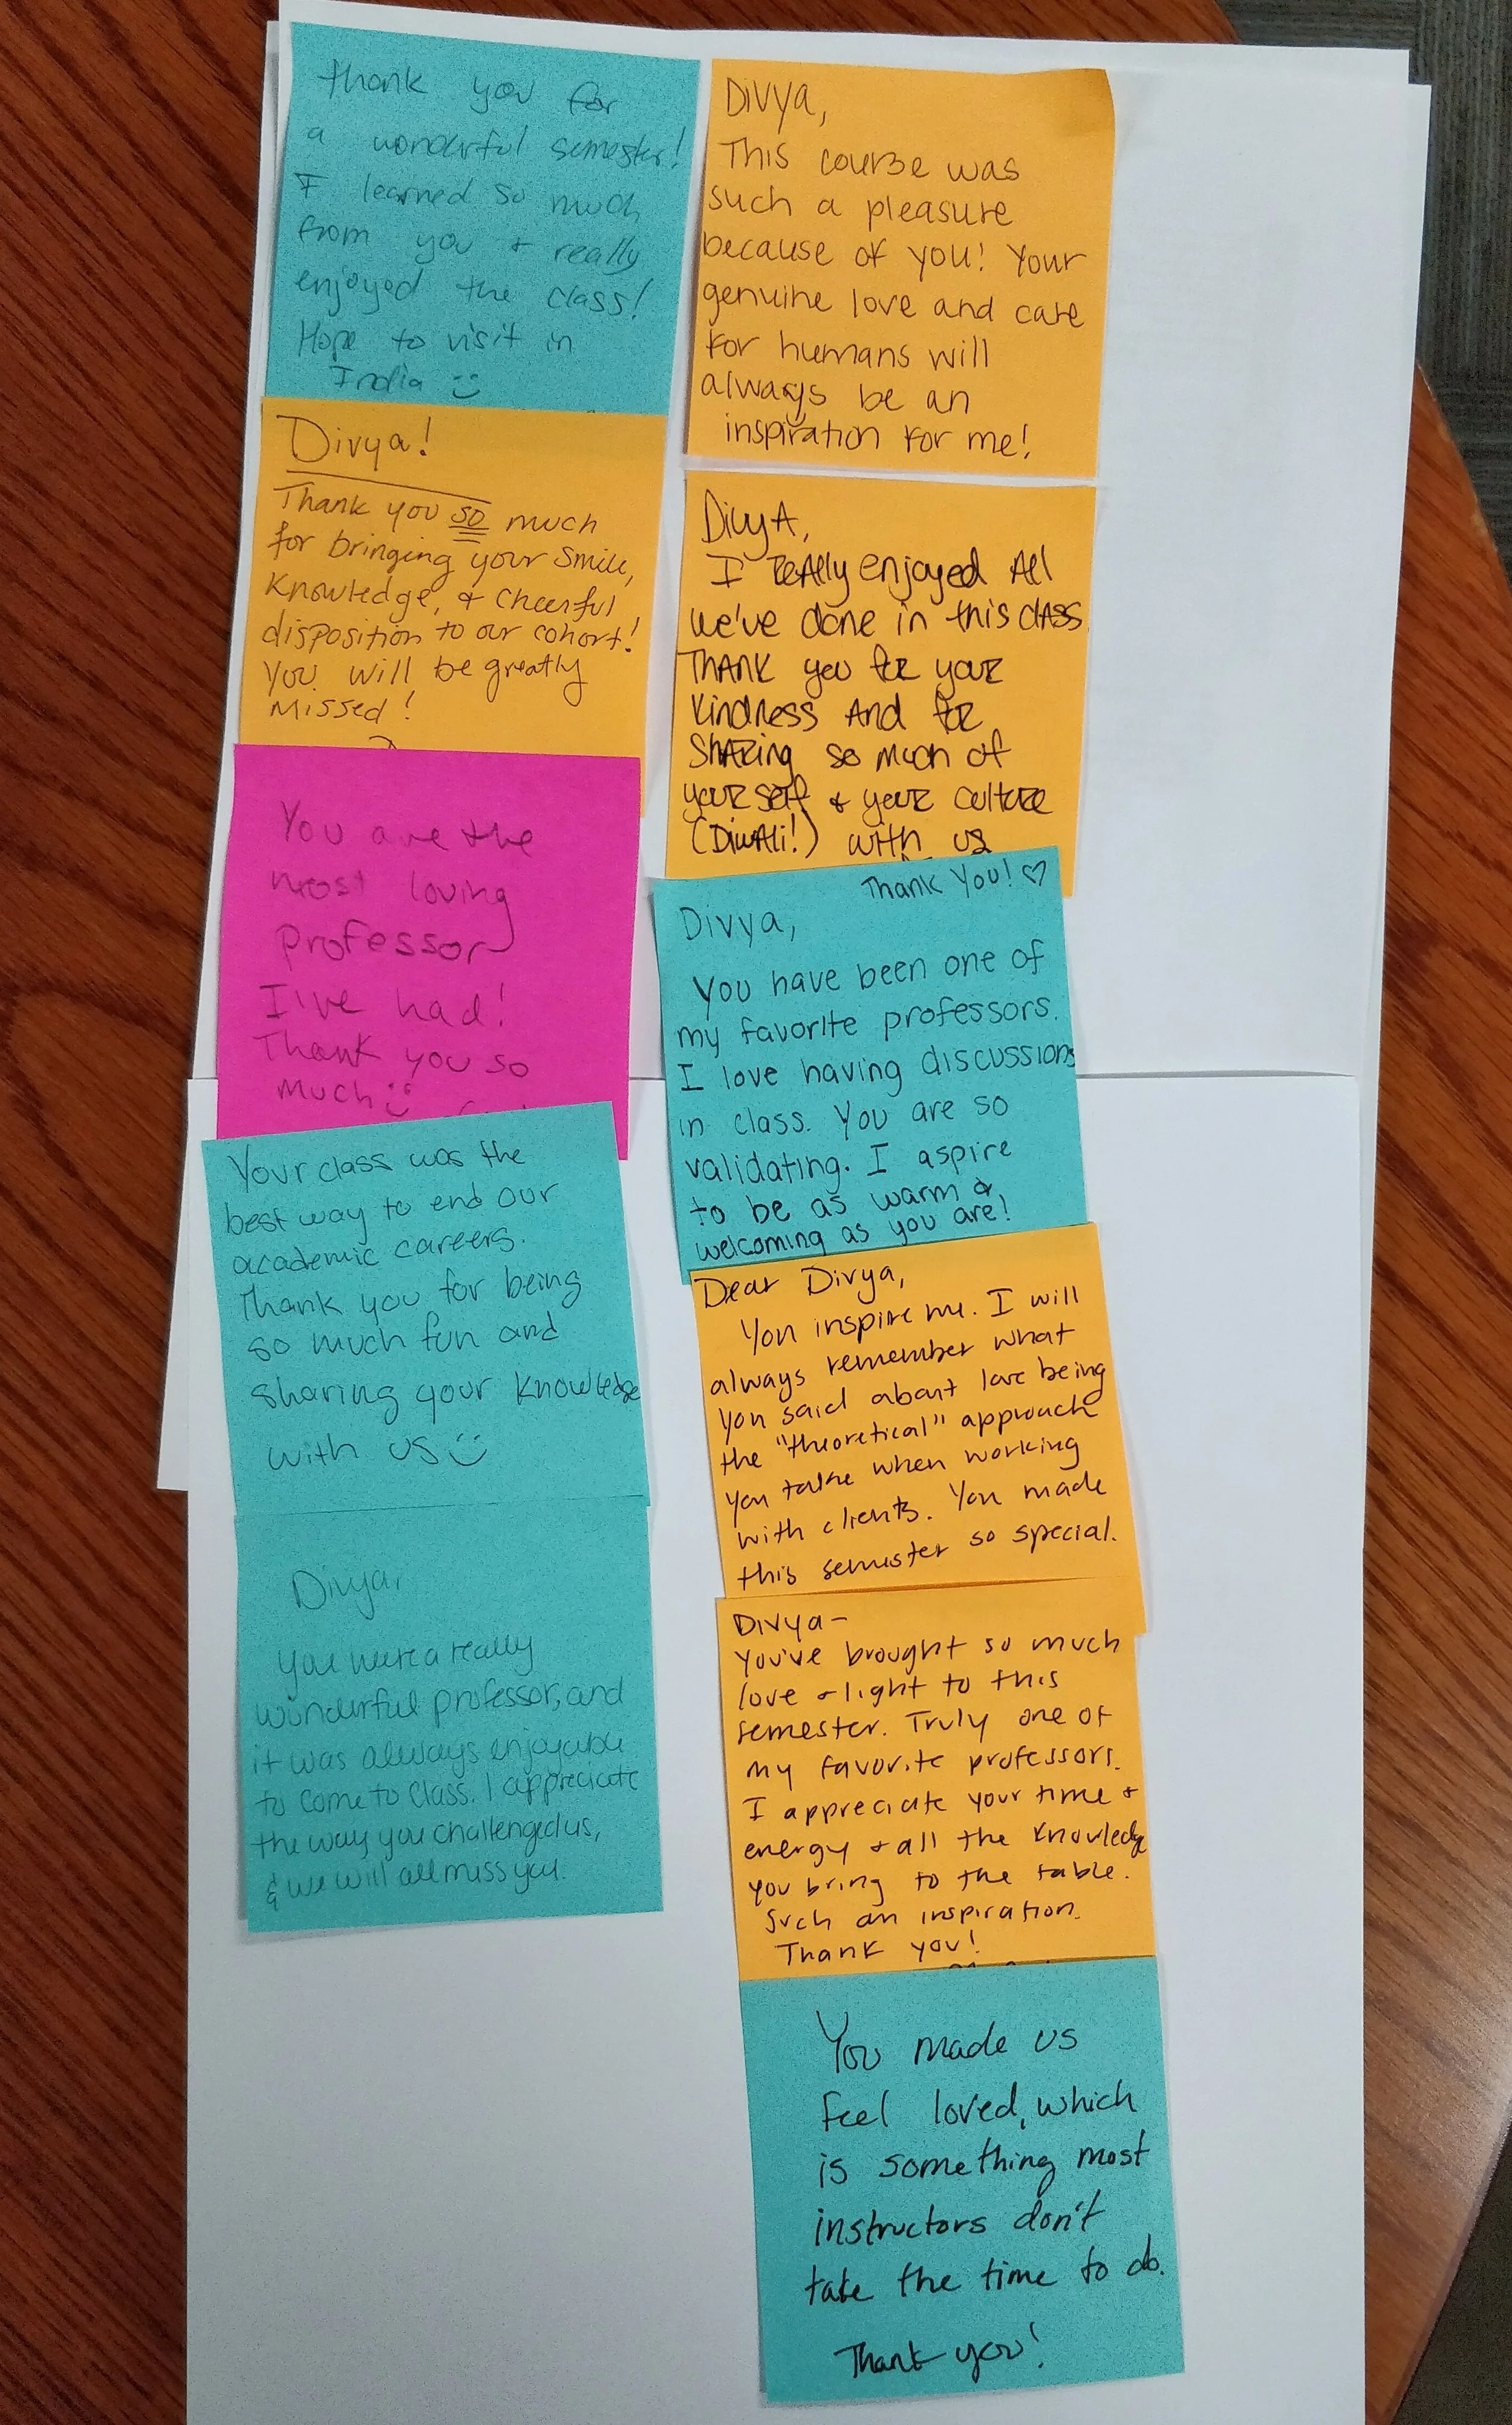 Thank you for
a wonderful semester!
I learned so much
from you + really
enjoyed the class!
Hope to visit in
India :)
Divya!
Thank you so much
for bringing your smile,
knowledge, & cheerful
disposition to our cohort!
You will be greatly
missed!
You are the
most loving
professor
I've had!
Thank you so
much :)
Your class was the
best way to end our
academic careers.
Thank you for being
so much fun and
sharing your knowledge
with us :)
Divya,
You were a really
wonderful professor, and
it was always enjoyable
to come to class. I appreciate
the way you challenged us,
& we will all miss you.
Divya,
This course was
such a pleasure
because of you! Your
genuine love and care
for humans will
always be an
inspiration for me!
DivyA,
I reAlly enjoyed All
we've done in this clASS.
THANK you foR youR
kindness And foR
ShARing so much of
youRself & youR cultuRe
(DiwAli!) with us
Thank You! ♡
Divya,
You have been one of
my favorite professors.
I love having discussions
in class. You are so
validating. I aspire
to be as warm &
welcoming as you are!
Dear Divya,
You inspire me. I will
always remember what
you said about love being
the "theoretical" approach
you take when working
with clients. You made
this semester so special.
Divya-
You've brought so much
love + light to this
semester. Truly one of
my favorite professors.
I appreciate your time +
energy + all the knowledge
you bring to the table.
Such an inspiration.
Thank you!
You made us
feel loved, which
is something most
instructors don't
take the time to do.
Thank you!